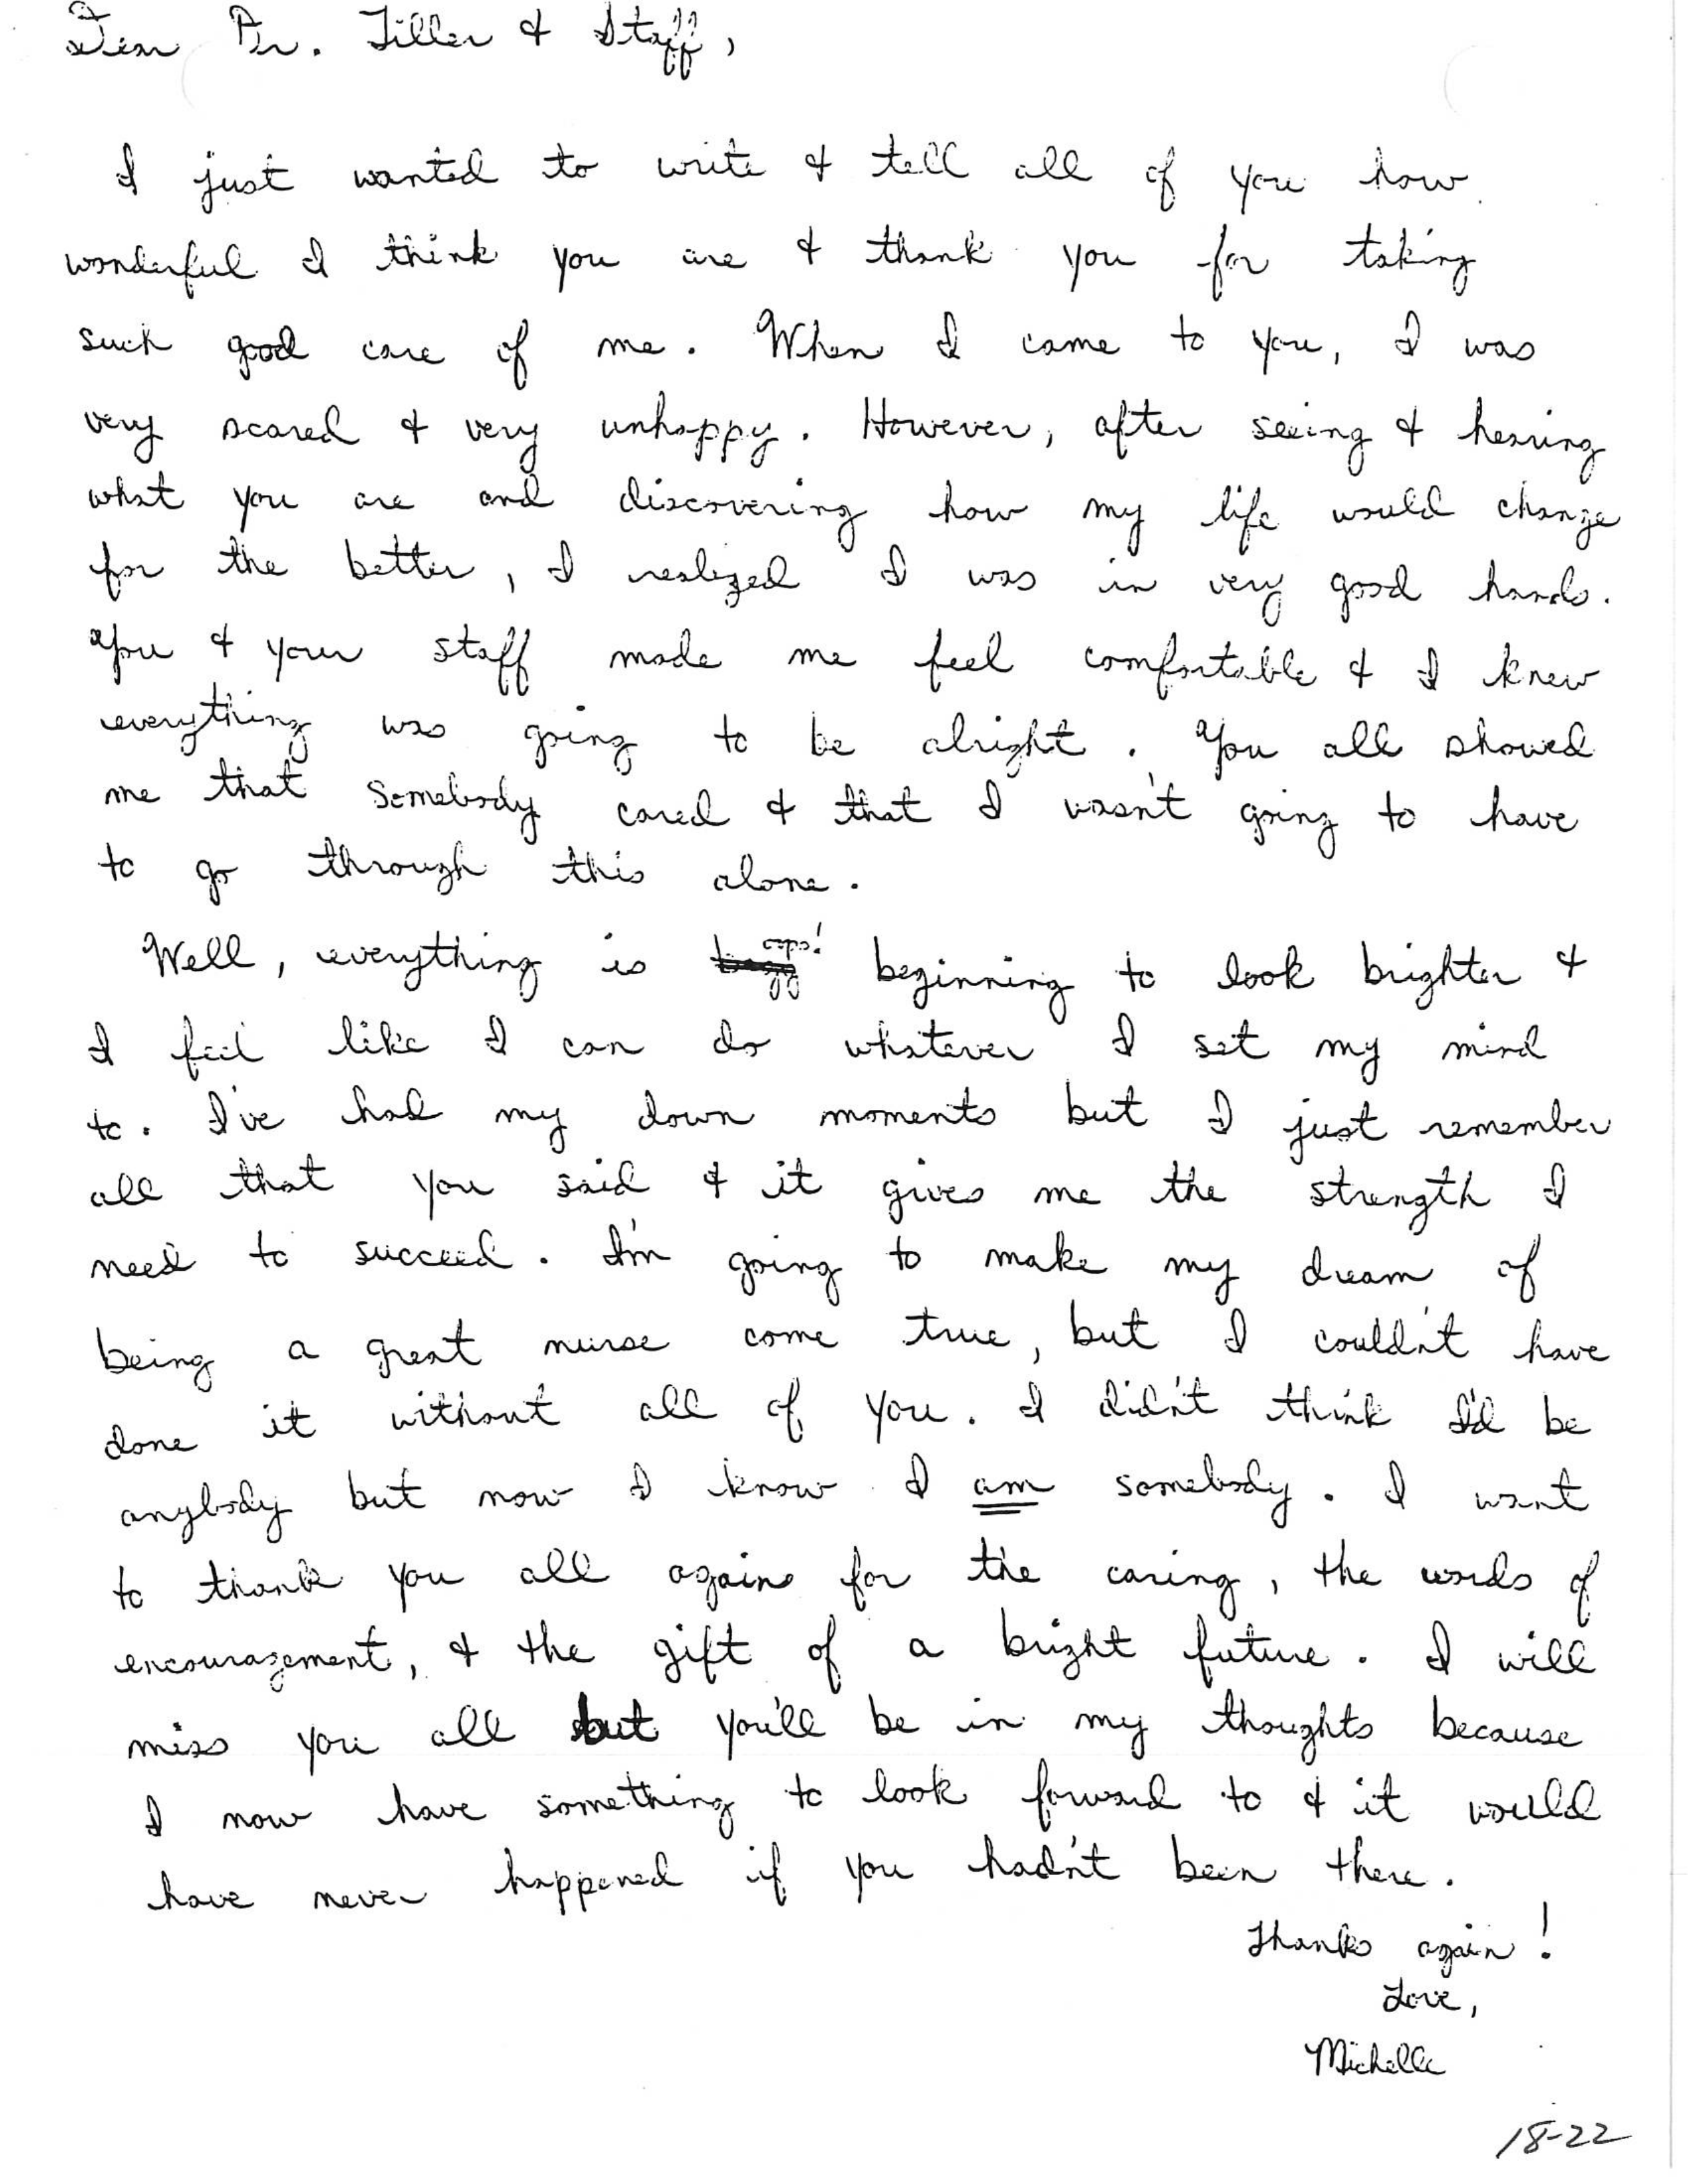 Dear Dr. Tiller & Staff,
I just wanted to write & tell all of you how
wonderful I think you are & thank you for taking
such good care of me. When I came to you, I was
very scared & very unhappy. However, after seeing & hearing
what you are and discovering how my life would change
for the better, I realized I was in very good hands.
You & your staff made me feel comfortable & I knew
everything was going to be alright. You all showed
me that somebody cared & that I wasn't going to have
to go through this alone.
Well, everything is oops! beginning to look brighter &
I feel like I can do whatever I set my mind
to. I've had my down moments but I just remember
all that you said & it gives me the strength I
need to succeed. I'm going to make my dream of
being a great nurse come true, but I couldn't have
done it without all of you. I didn't think I'd be
anybody but now I know I am somebody. I want
to thank you all again for the caring, the words of
encouragement, & the gift of a bright future. I will
miss you all but you'll be in my thoughts because
I now have something to look forward to & it would
have never happened if you hadn't been there.
Thanks again!
Love,
Michelle
18-22